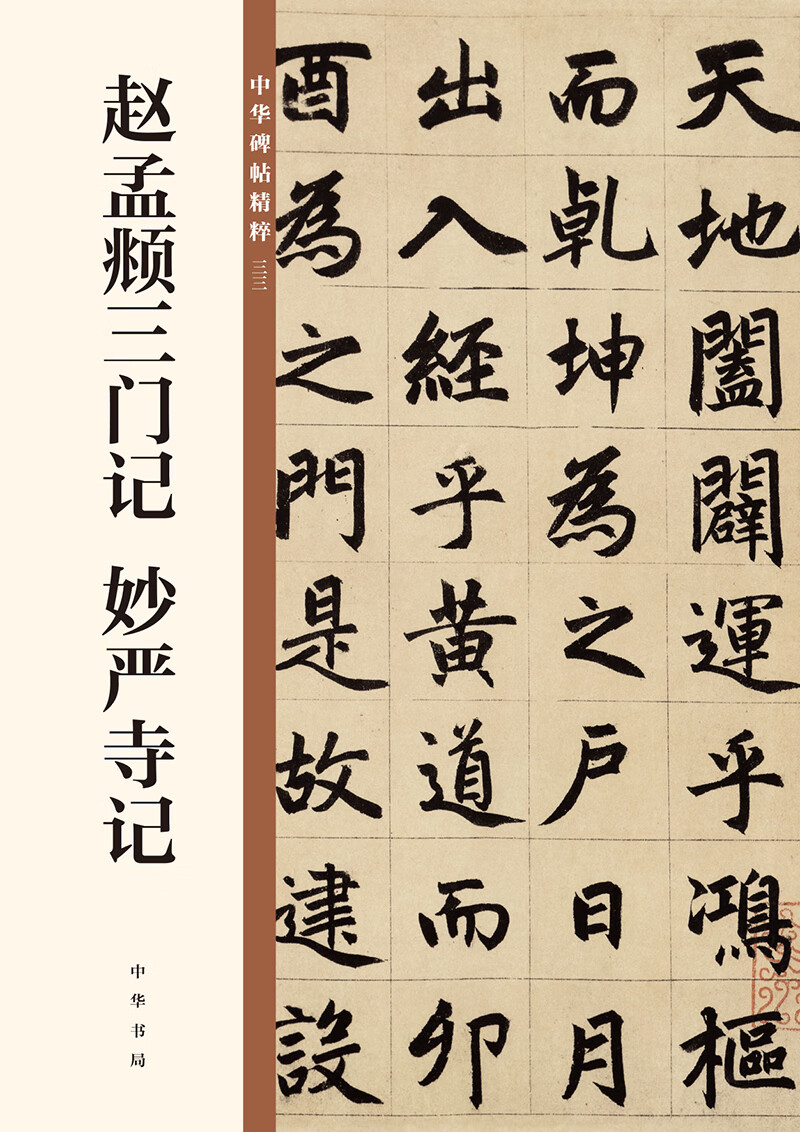 赵孟頫三门记 妙严寺记
中华书局
中华碑帖精粹 三三
天地闔闢運乎鴻樞
而乹坤為之户日月
出入經乎黃道而卯
酉為之門是故建設